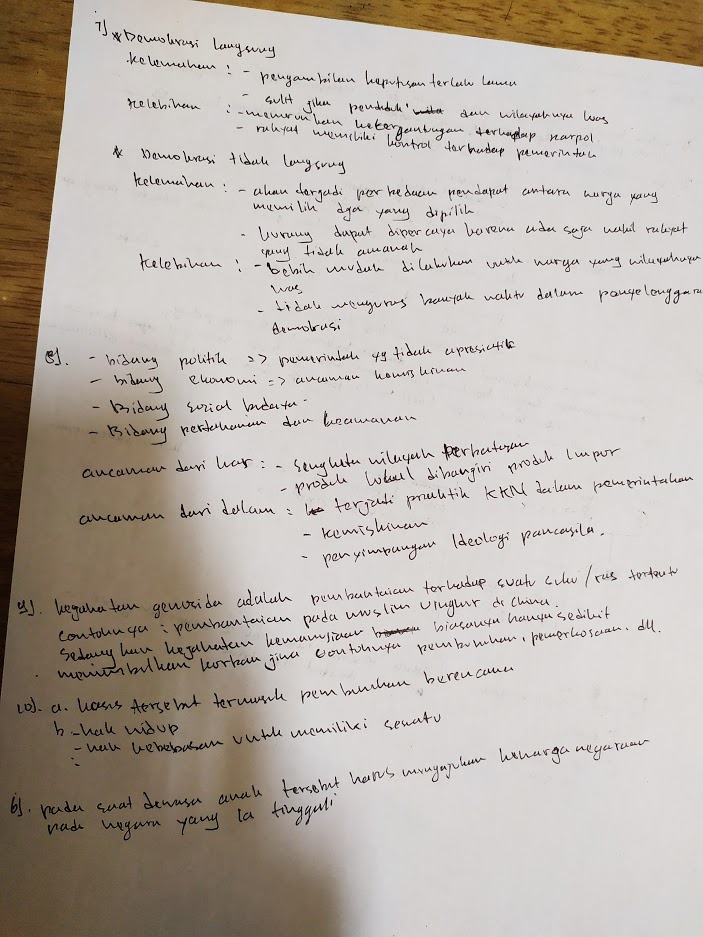 7) * Demokrasi langsung
kelemahan : - pengambilan keputusan terlalu lama
- sulit jika penduduk dan wilayahnya luas
kelebihan : - menurunkan ketergantungan terhadap parpol
- rakyat memiliki kontrol terhadap pemerintah
* Demokrasi tidak langsung
kelemahan : - akan terjadi perbedaan pendapat antara warga yang
memilih dga yang dipilih
- kurang dapat dipercaya karena ada saja wakil rakyat
yang tidak amanah
kelebihan : - lebih mudah dilakukan untuk warga yang wilayahnya
luas
- tidak menguras banyak waktu dalam penyelenggara
demokrasi
8). - bidang politik => pemerintah yg tidak apresiatik
- bidang ekonomi => ancaman kemiskinan
- Bidang sosial budaya
- Bidang pertahanan dan keamanan
ancaman dari luar : - sengketa wilayah perbatasan
- produk lokal dibangiri produk impor
ancaman dari dalam : terjadi praktik KKN dalam pemerintahan
- kemiskinan
- penyimpangan Ideologi pancasila.
9). kejahatan genosida adalah pembantaian terhadap suatu suku / ras tertentu
contohnya : pembantaian pada muslim uighur di china.
sedangkan kejahatan kemanusiaan biasanya hanya sedikit
menimbulkan korban jiwa contohnya pembunuhan, pemerkosaan, dll.
10). a. kasus tersebut termasuk pembunuhan berencana
b. - hak hidup
- hak kebebasan untuk memiliki sesuatu
:
6). pada saat dewasa anak tersebut harus mengajukan kewarganegaraan
pada negara yang ia tinggali